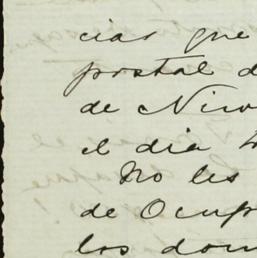 cias que
postal d
de Nir
el dia
No les
de Ocup
los dom